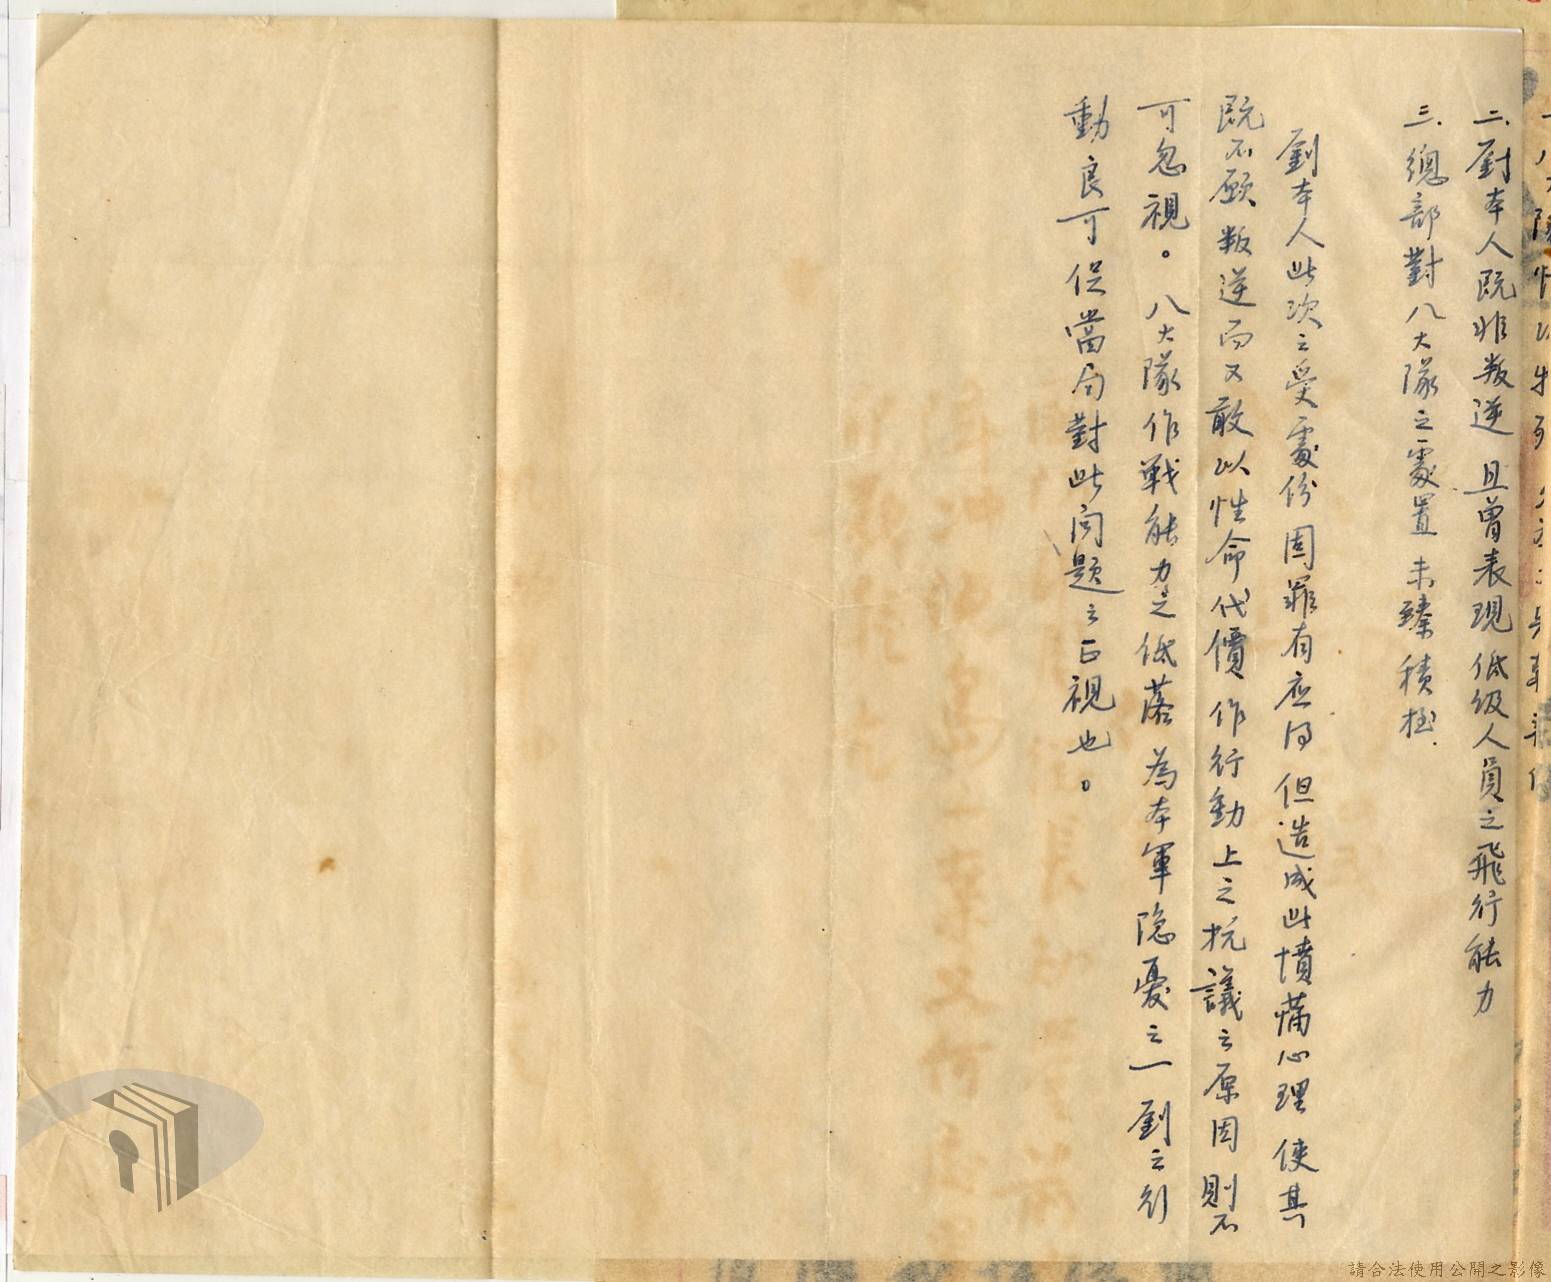 二、劉本人既非叛逆 且曾表現低級人員之飛行能力
三、總部對八大隊之處置 未臻積極.
劉本人此次之受處份 固罪有應得 但造成此憤懣心理 使其
既不願叛逆而又敢以性命代價 作行動上之抗議之原因 則不
可忽視。八大隊作戰能力之低落 為本軍隱憂之一 劉之行
動良可促當局對此問題之正視也。
請合法使用公開之影像